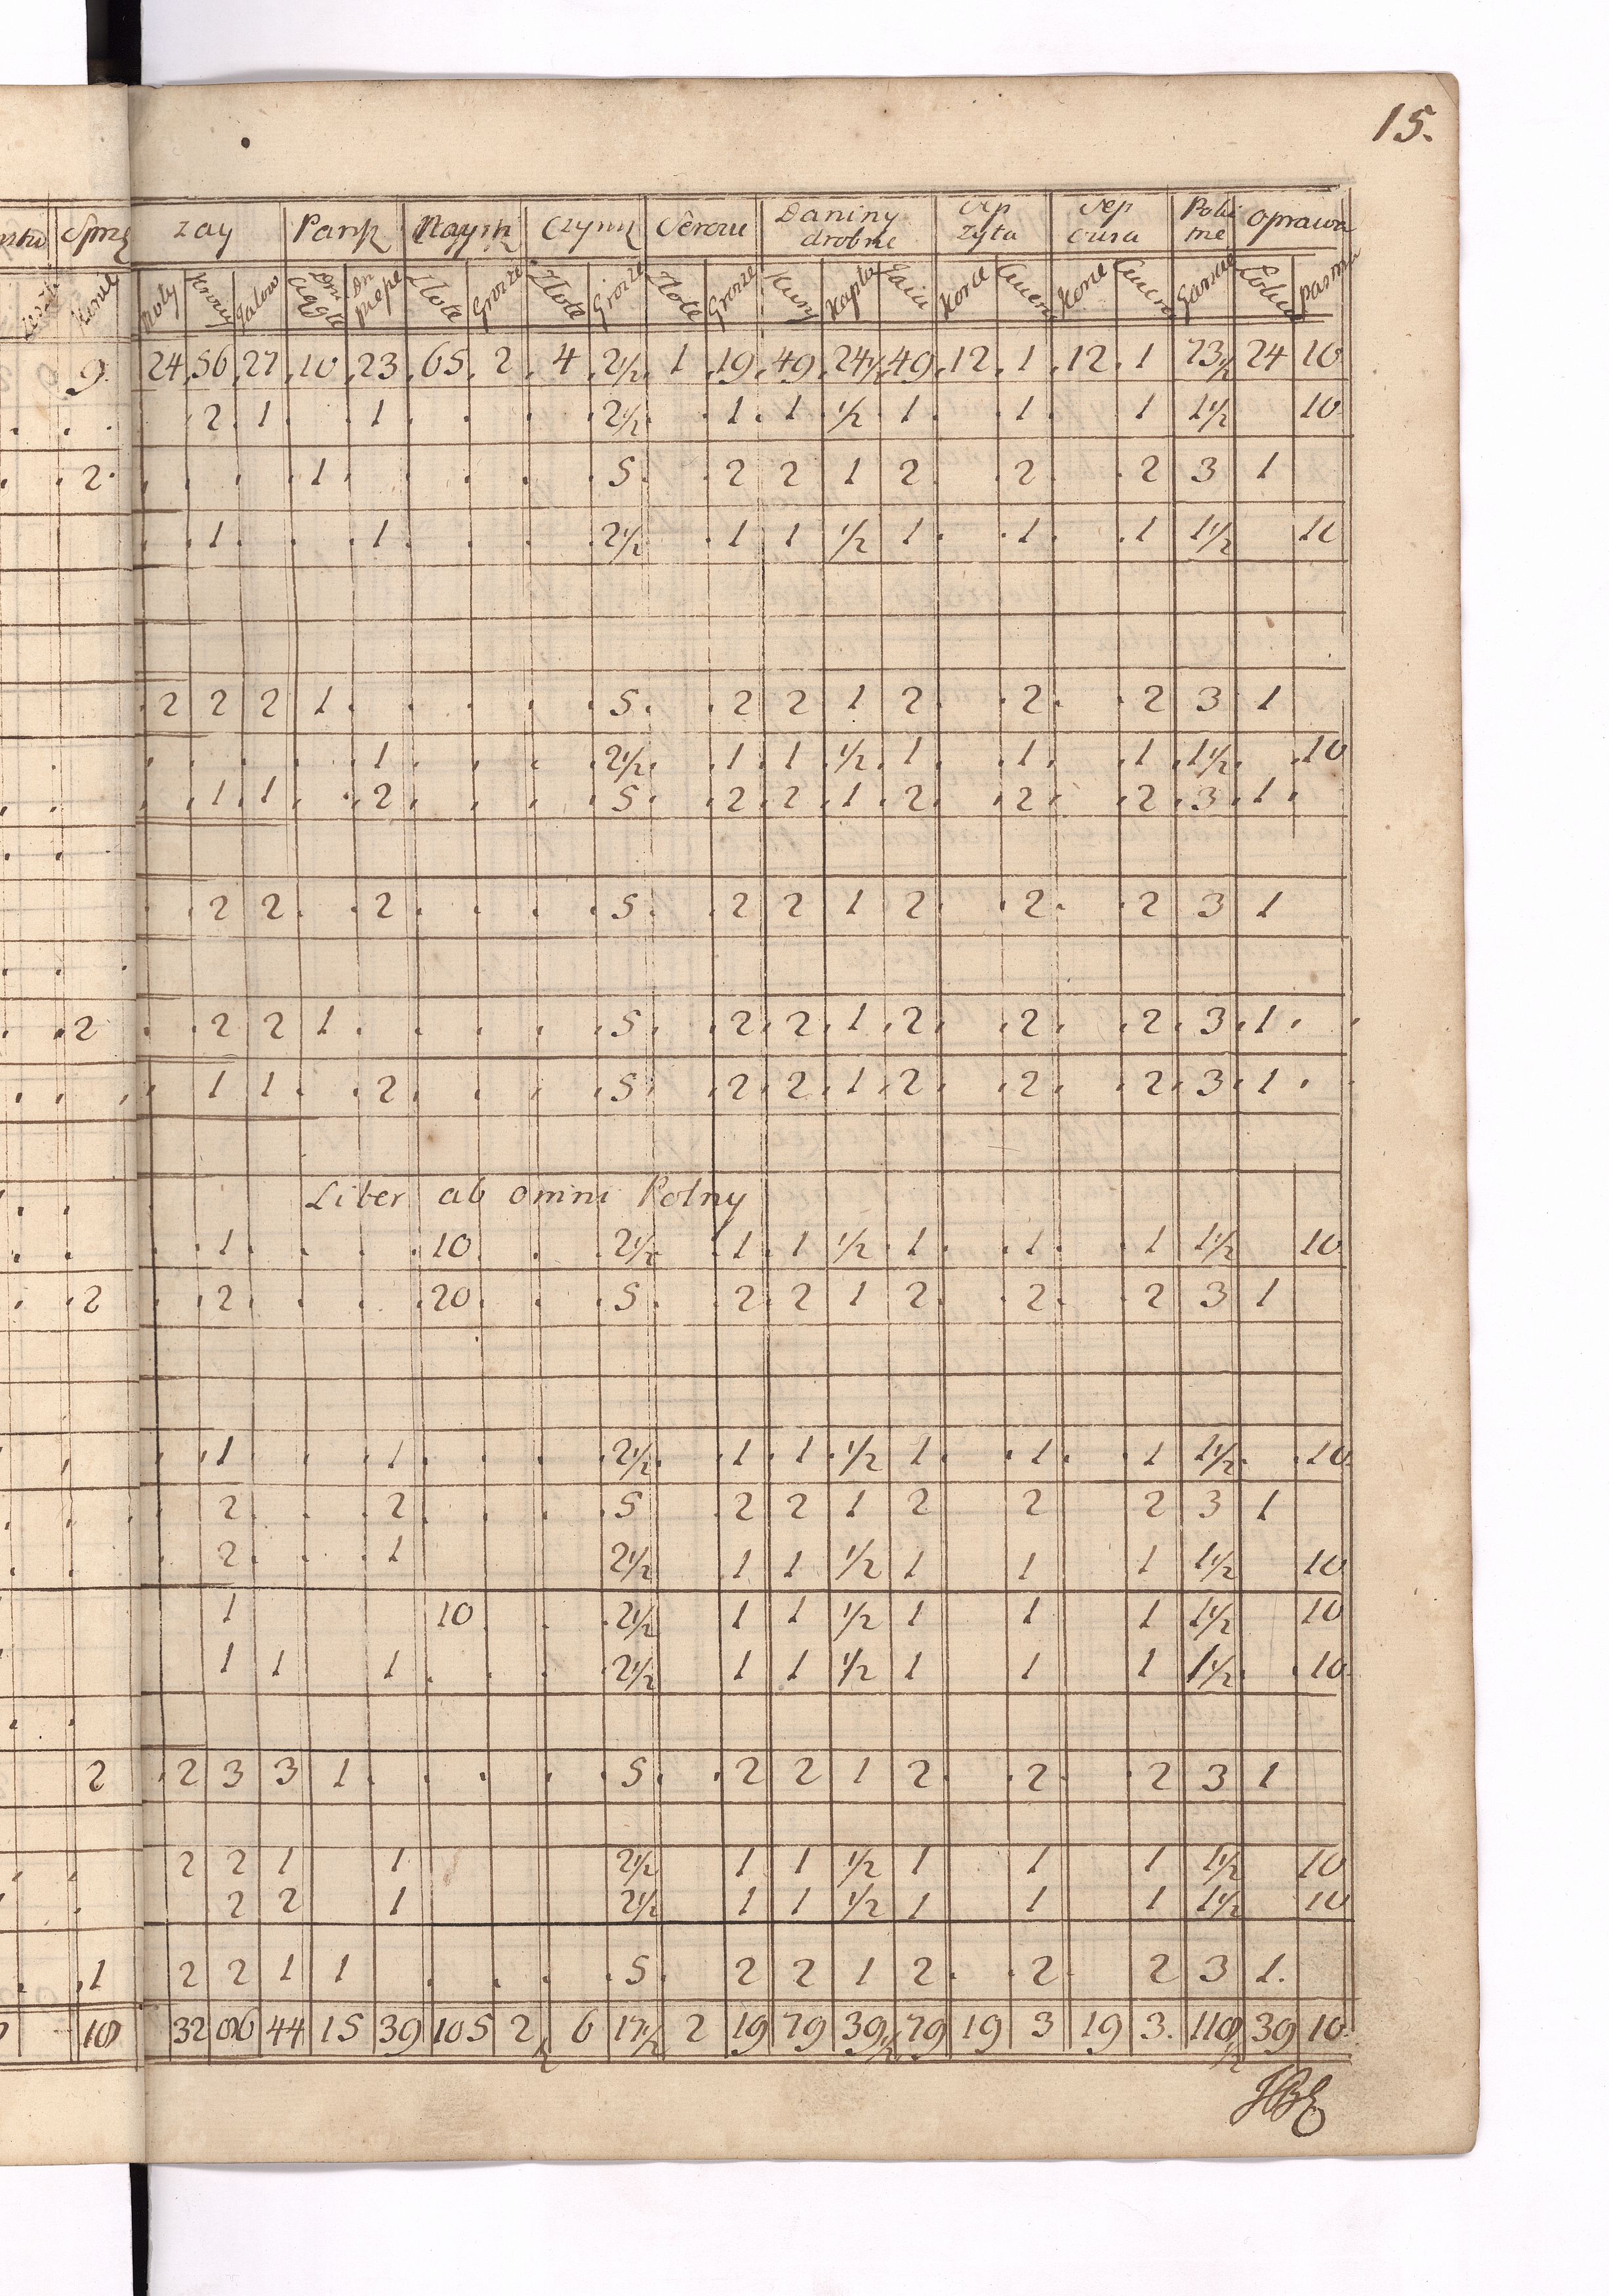 15.
Sprzę zay Pańsz Naym Czynsz Sêrowe Daniny drobne Sep zyta Sep owsa Oprawa
Woły Krowy Jałow Dni Ciągłe Dni piesze Złote Grosze Złote Grosze Złote Grosze Kury Kapło Jaica Korce Korce Garnce Pasma
9 24 56 27 10 23 65 2 4 2½ 1 19 49 24½ 49 12 1 12 1 73½ 24 10
2 1 1 2½ 1 1 ½ 1 1 1 1½ 10
2 1 5 2 2 1 2 2 2 3 1
1 1 2½ 1 1 ½ 1 1 1 1½ 10
2 2 2 1 5 2 2 1 2 2 2 3 1
1 2½ 1 1 ½ 1 1 1 1½ 10
1 1 2 5 2 2 1 2 2 2 3 1
2 2 2 5 2 2 1 2 2 2 3 1
2 2 2 1 5 2 2 1 2 2 2 3 1
1 1 2 5 2 2 1 2 2 2 3 1
Liber ab omni Polny
1 10 2½ 1 1 ½ 1 1 1 1½ 10
2 2 20 5 2 2 1 2 2 2 3 1
1 1 2½ 1 1 ½ 1 1 1 1½ 10
2 2 5 2 2 1 2 2 2 3 1
2 1 2½ 1 1 ½ 1 1 1 1½ 10
1 10 2½ 1 1 ½ 1 1 1 1½ 10
1 1 1 2½ 1 1 ½ 1 1 1 1½ 10
2 2 3 3 1 5 2 2 1 2 2 2 3 1
2 2 1 1 2½ 1 1 ½ 1 1 1 1½ 10
2 2 1 2½ 1 1 ½ 1 1 1 1½ 10
1 2 2 1 1 5 2 2 1 2 2 2 3 1
32 44 15 39 105 2 6 17½ 2 19 79 39½ 79 19 3 19 3 39 10